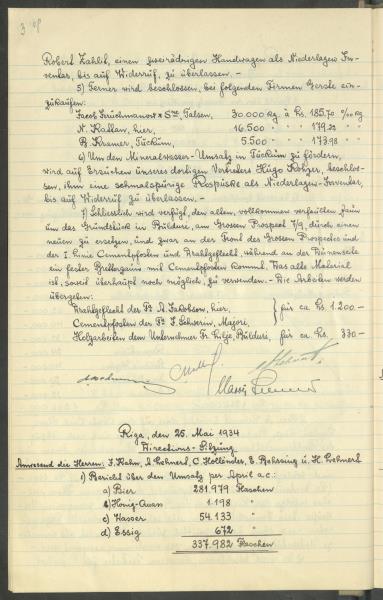 Robert Zahlit, einen zweirädrigen Handwagen als Niederlagen In-
ventar, bis auf Widerruf, zu überlassen. –
5) Ferner wird beschlossen, bei folgenden Firmen Gerste ein-
zukaufen:
Jacob Firschmanow & Sne, Talsen, 30.000 kg. à Ls. 185.70 %00 kg
N. Kaplan, hier, 16.500 " 179.20 "
B. Kramer, Tuckum, 5.500 " 173.98 "
6) Um den Mineralwasser-Umsatz in Tuckum zu fördern,
wird auf Ersuchen unseres dortigen Vertreters Hugo, beschlos-
sen, ihm eine schmalspurige Rospuske als Niederlagen-Inventar,
bis auf Widerruf zu überlassen. –
7) Schliesslich wird verfügt, den alten, vollkommen verfaulten Zaun
um das Grundstück in Bulduri, am Grossen Prospect 7/9, durch einen
neuen zu ersetzen, und zwar an der Front des Grossen Prospectes und
der I. Linie Cementpfosten und Drahtgeflecht, während an der Dünenseite
ein fester Bretterzaun mit Cementpfosten kommt. Das alte Material
ist, soweit überhaupt noch möglich, zu verwenden. – Die Arbeiten werden
übergeben:
Drahtgeflecht der Fa A. Jakobson, hier, } für ca Ls 1.200.–
Cementpfosten der Fa F. Schwerin, Majori,
Holzarbeiten dem Unternehmer Fr. Lilje, Bulduri, für ca Ls. 330–
Riga, den 25. Mai 1934
Directions-Sitzung
Anwesend die Herren: F. Kahn, A. Lehnert, C. Holländer, E. Behrsing u. H. Lehnert
1) Bericht über den Umsatz per April a.c.:
a) Bier 281.979 Flaschen
b) Honig- 1.198 "
c) Wasser 54.133 "
d) Essig 672 "
337.982 Flaschen